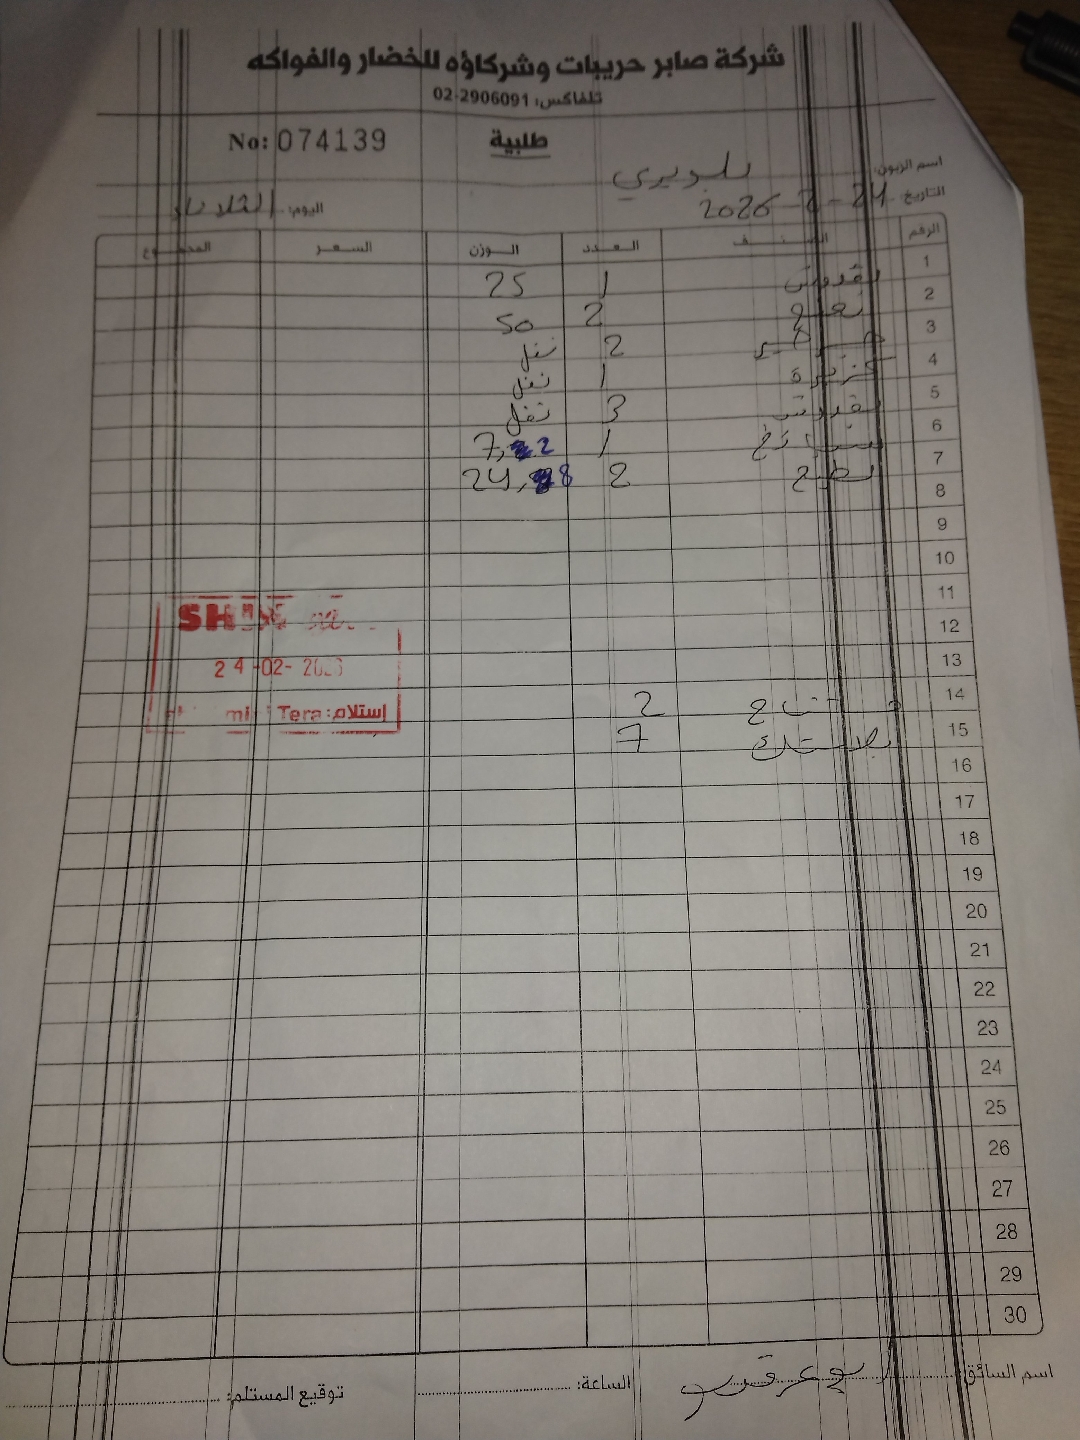 شركة صابر حريبات وشركاؤه للخضار والفواكه
تلفاكس: 02-2906091
No: 074139
طلبية
اسم الزبون:
التاريخ: 24-2-2026 اليوم: الثلاثاء
الرقم الصنف العدد الوزن السعر المجموع
1 بقدونس 1 25
2 نعنع 2 50
3 2 نفل
4 كزبرة 1 نفل
5 بقدونس 3 نفل
6 1 7,2
7 بطيخ 2 24,8
8
9
10
11
12
13
14 2
15 بلاستيك 7
16
17
18
19
20
21
22
23
24
25
26
27
28
29
30
24-02-2026
إستلام: Tera
اسم السائق: الساعة: توقيع المستلم: